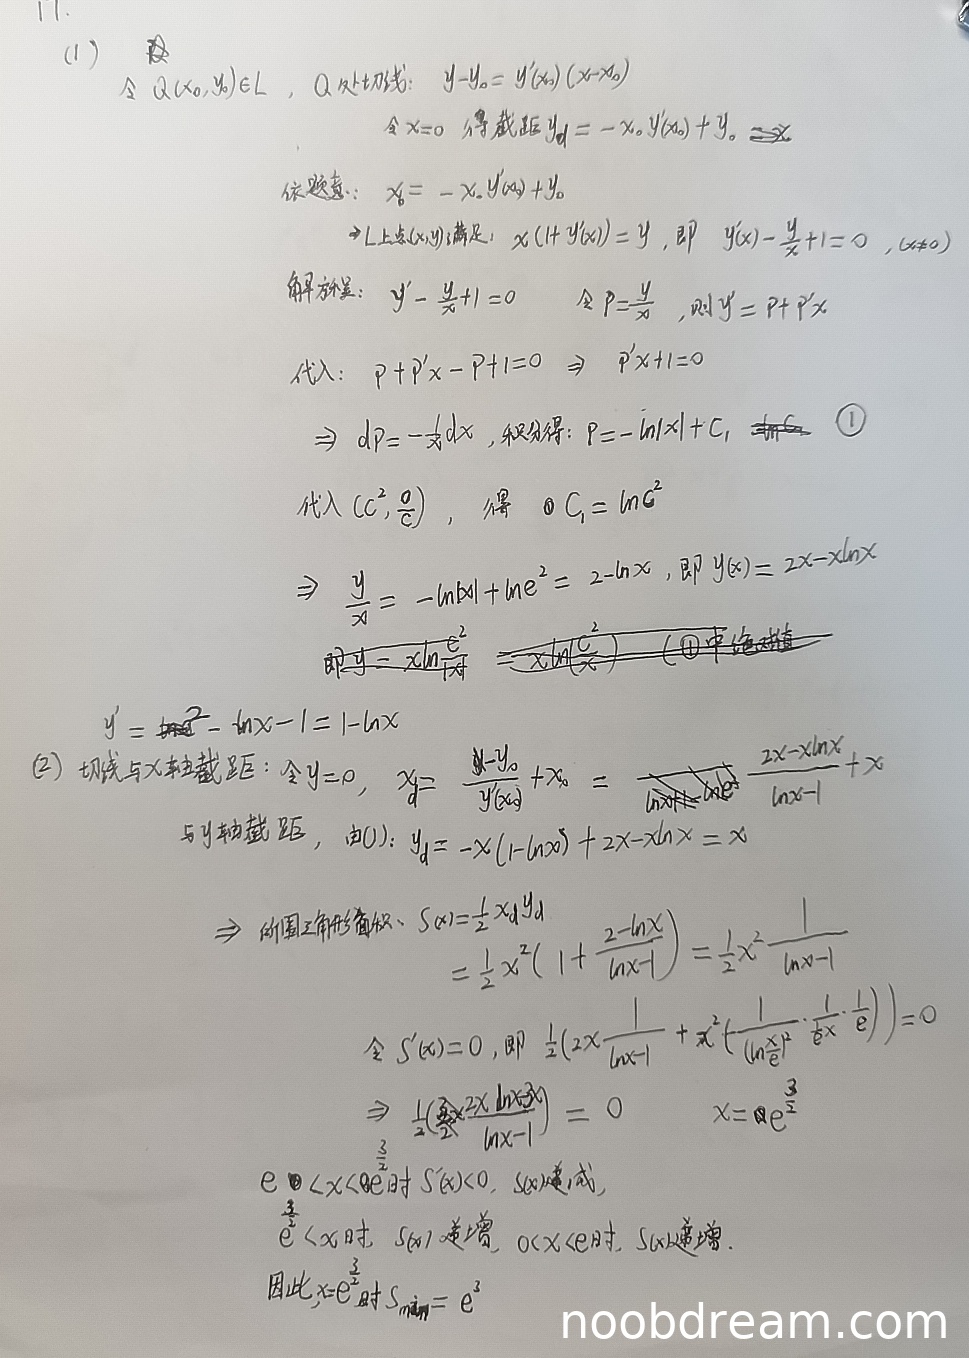 17.
(1)
令 Q(x₀,y₀)∈L , Q处切线: y-y₀ = y'(x₀)(x-x₀)
令x=0 得截距 y_d = -x₀y'(x₀)+y₀
依题意: x₀ = -x₀y'(x₀)+y₀
⇒L上点(x,y)满足: x(1+y'(x))=y , 即 y'(x) - y/x + 1 = 0 , (x≠0)
解方程: y' - y/x + 1 = 0 令 P = y/x , 则 y' = P + P'x
代入: P + P'x - P + 1 = 0 ⇒ P'x + 1 = 0
⇒ dP = -1/x dx , 积分得: P = -ln|x| + C₁ ①
代入 (e², 0/e) , 得 C₁ = lne²
⇒ y/x = -ln|x| + lne² = 2-lnx , 即 y(x) = 2x-xlnx
y' = 2 - lnx - 1 = 1-lnx
(2) 切线与x轴截距: 令y=0, x_d = (y-y₀)/y'(x₀) + x₀ = (2x-xlnx)/(lnx-1) + x
与y轴截距, 由(1): y_d = -x(1-lnx) + 2x-xlnx = x
⇒ 所围三角形面积、 S(x) = 1/2 x_d y_d
= 1/2 x²(1 + (2-lnx)/(lnx-1)) = 1/2 x² 1/(lnx-1)
令 S'(x)=0 , 即 1/2(2x 1/(lnx-1) + x²(-1/(ln x/e)² · 1/(1/e x) · 1/e)) = 0
⇒ 1/2( (2x lnx-3x)/(lnx-1) ) = 0 x = e^(3/2)
e < x < e^(3/2) 时 S'(x)<0, S(x)递减,
e^(3/2) < x 时, S(x) 递增, 0<x<e时, S(x)递增.
因此, x=e^(3/2)时 S_min = e³
noobdream.com